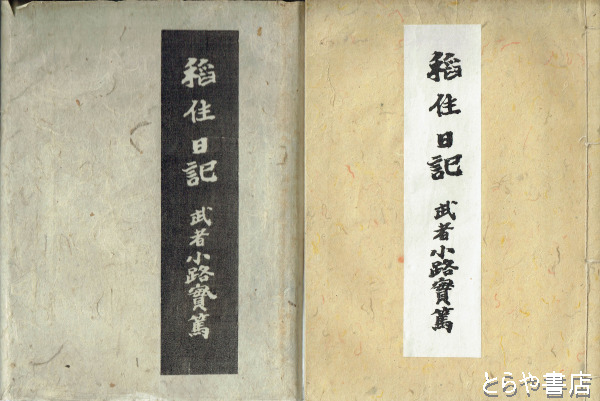 稲住日記
武者小路實篤
稲住日記
武者小路實篤
とらや書店